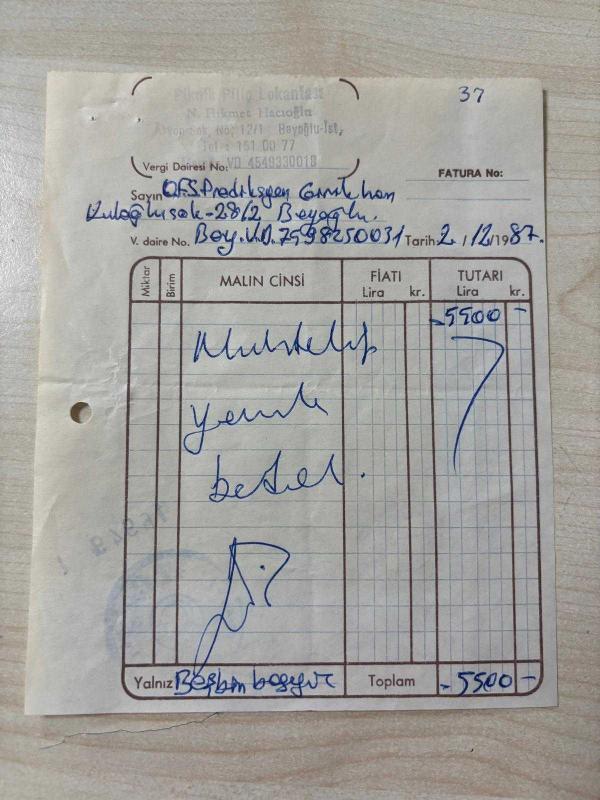 37
Piknik Piliç Lokantası
N. Hikmet Hacıoğlu
No: 12/1 Beyoğlu-İst,
Tel : 151 00 77
Vergi Dairesi No: VD 4549330018
FATURA No:
Sayın OFS Prodiksyon
Kuloğlu sok-28/2 Beyoğlu.
V. daire No. Bey.V.D. 7598250031 Tarih: 2 / 12 /1987.
Miktar Birim MALIN CİNSİ FİATI Lira kr. TUTARI Lira kr.
-5500-
Muhtelif
yemek
bedel.
Yalnız Beşbin beşyüz Toplam -5500-